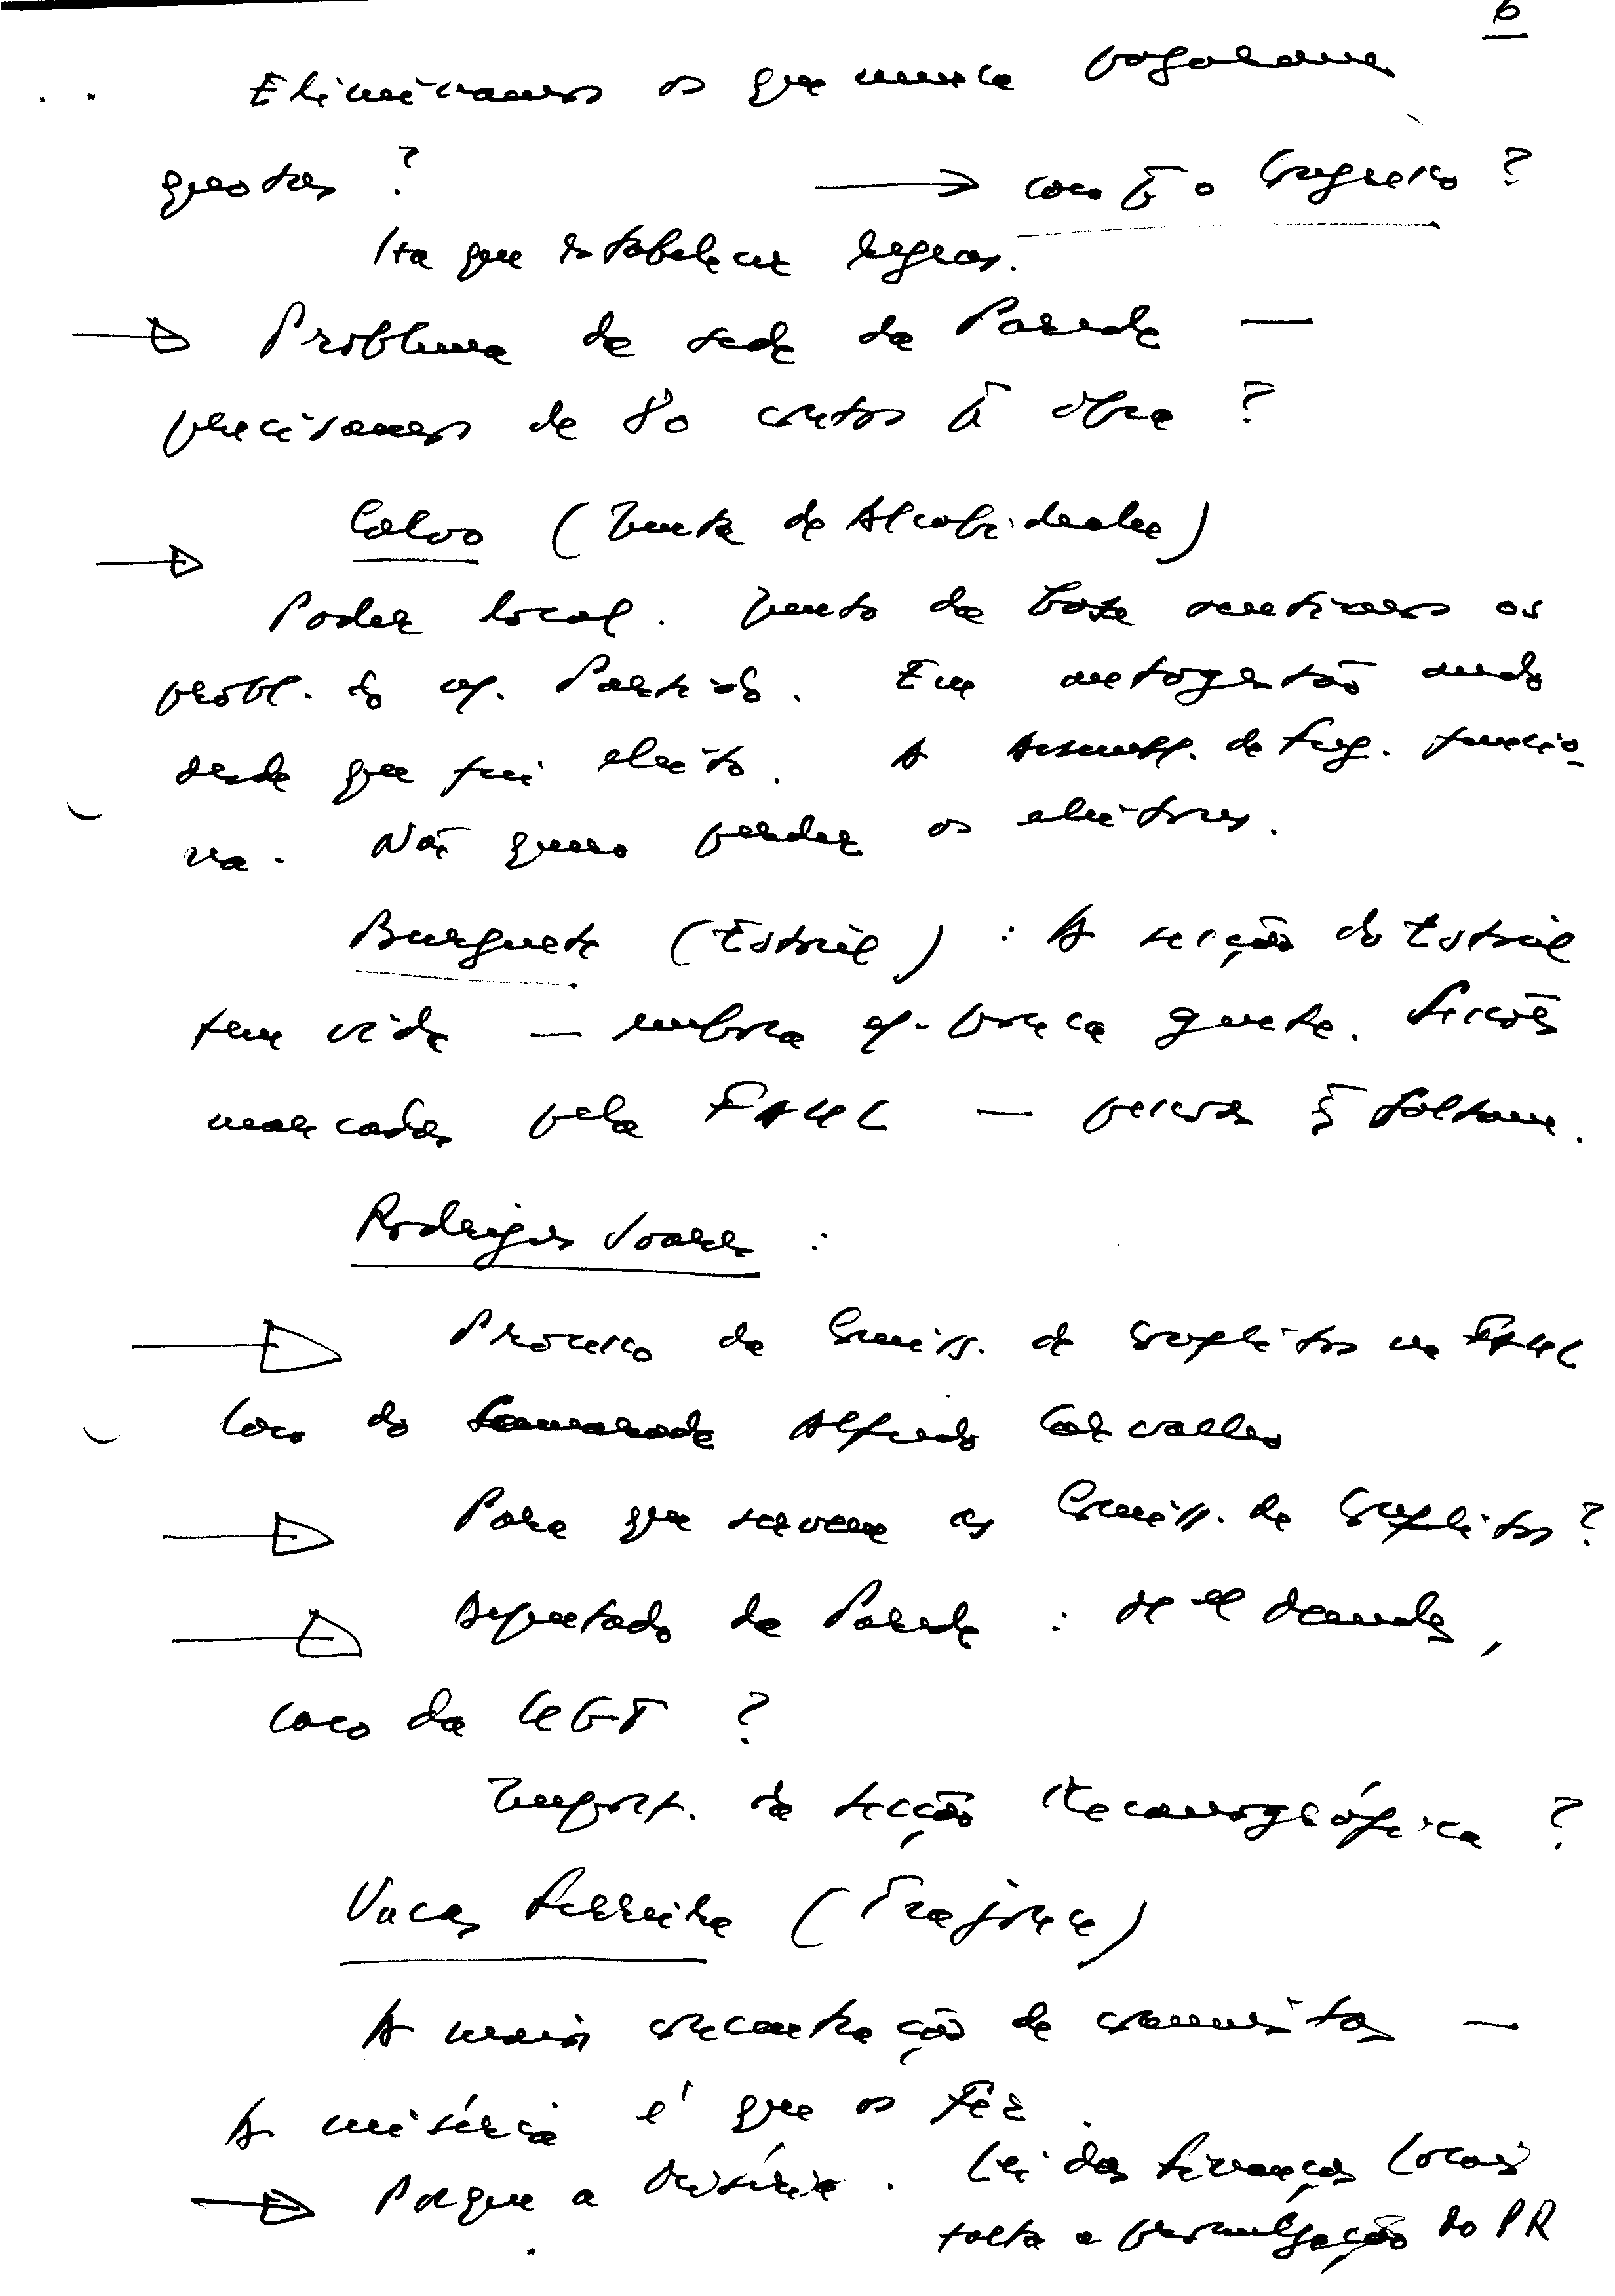 6
Eliminamos os que nunca pagaram
quotas ? → caso p/ o Congresso ?
Há que estabelecer regras.
Problema da sede da Parede —
precisamos de 80 contos p/ obra ?
Calvo (Junta de Alcabideche)
Poder local. Junto da base sentimos os
probl. do Partido. Em autogestão ando
desde que fui eleito. A Assembl. de Freg. funcio-
na. Não quero perder os eleitores.
Burguete (Estoril) : A secção do Estoril
tem vida — embora c/ pouca gente. Secções
marcadas pela FAUL — pessoas faltam.
Rodrigues Soares :
Processo da Comiss. de Conflitos na FAUL
Caso do Camarada Alfredo Carvalho
Para que servem as Comiss. de Conflitos ?
Aguentado da Parede : de
caso da UGT ?
Import. da secção Mecanográfica ?
Vacas Ferreira (Trajouce)
A maior concentração de comunistas —
A miséria é que os fez.
Porque a miséria. Lei das Finanças Locais
falta a promulgação do PR